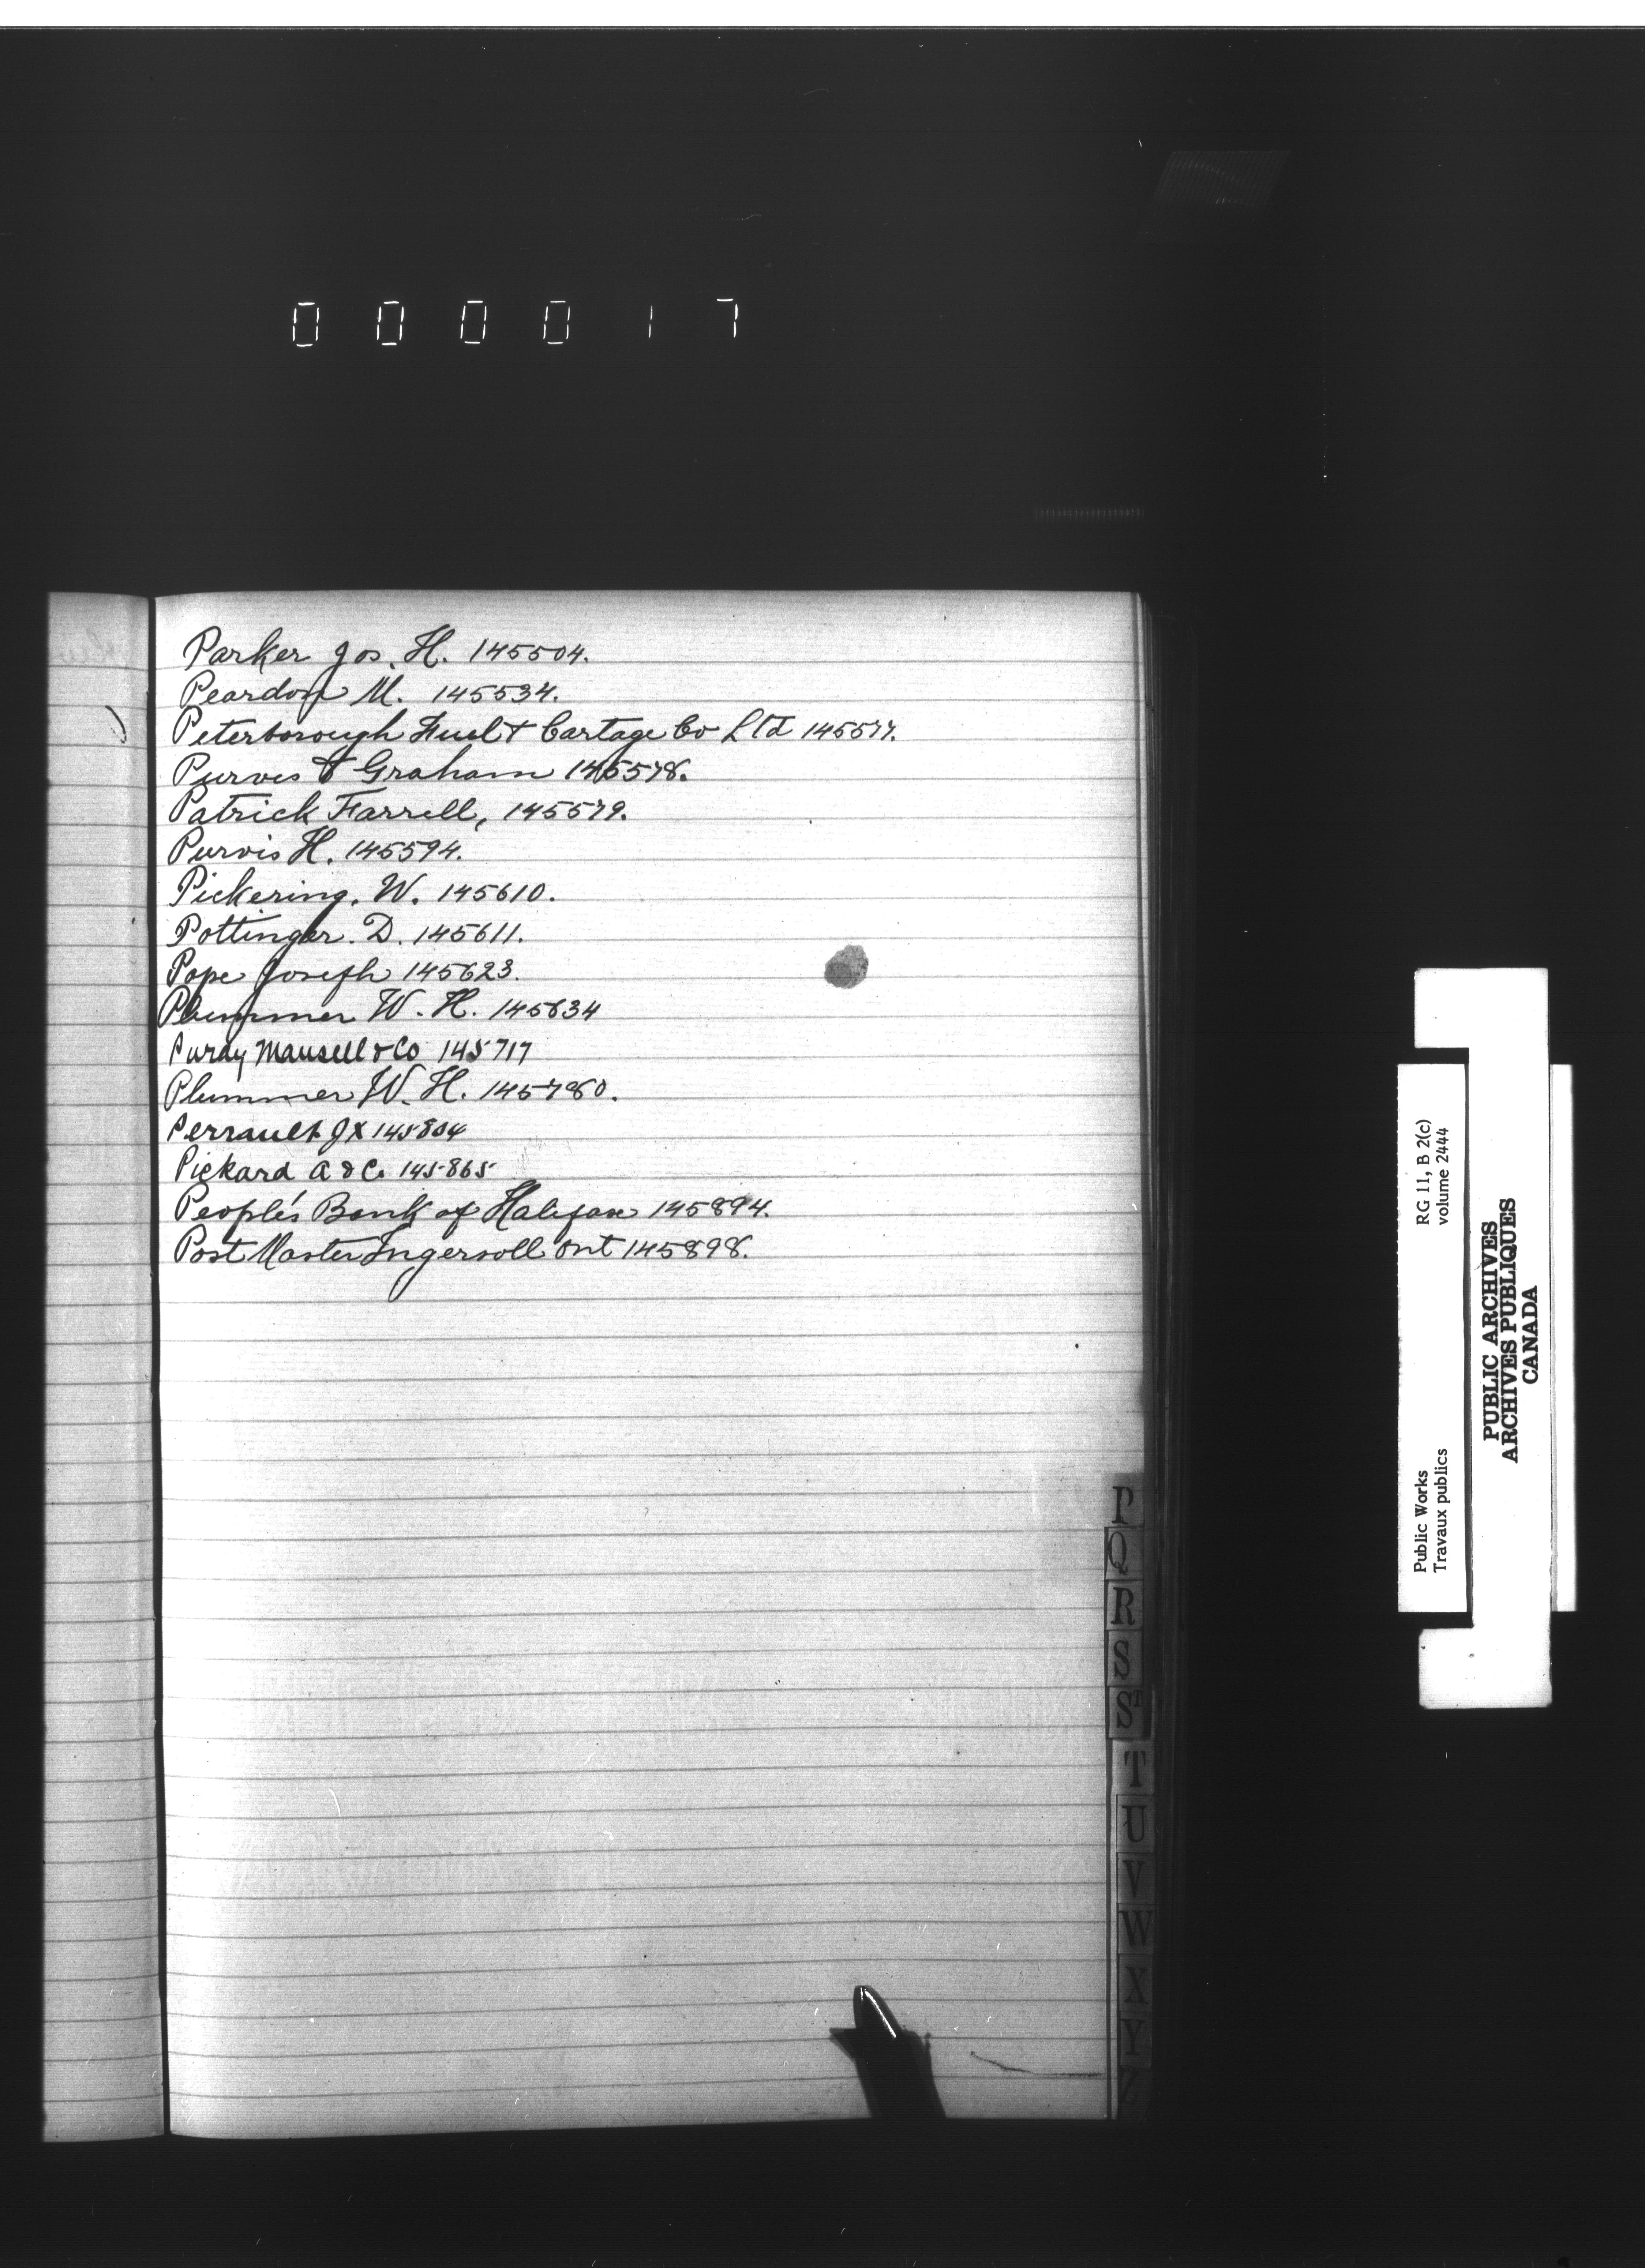 000017
Parker Jos. H. 145504.
Peardon M. 145534.
Peterborough Fuel & Cartage Co Ltd 145577.
Purves & Graham 145578.
Patrick Farrell, 145579.
Purvis H. 145594.
Pickering. W. 145610.
Pottinger. D. 145611.
Pope Joseph 145623.
Plummer W. H. 145634
Purdy Mansell & Co 145717
Plummer W. H. 145780.
Perrault J X 145804
Pickard A & Co 145865
People's Bank of Halifax 145894.
Post Master Ingersoll Ont 145898.
P
Q
R
S
ST
T
U
V
W
X
Y
Z
Public Works
Travaux publics
RG 11, B 2(c)
volume 2444
PUBLIC ARCHIVES
ARCHIVES PUBLIQUES
CANADA